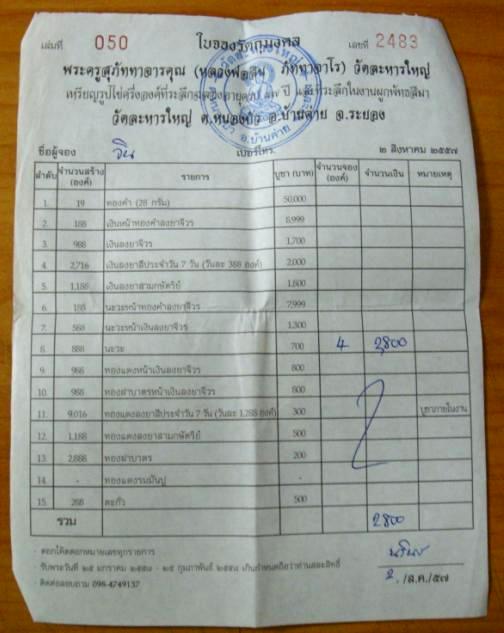 เล่มที่ 050 ใบจองวัตถุมงคล เลขที่ 2483
พระครูสุภัททาจารคุณ (หลวงพ่อสิน ภัททาจาโร) วัดละหารใหญ่
เหรียญรูปไข่ครึ่งองค์ที่ระลึกฉลองอายุครบ ปี และที่ระลึกในงานผูกพัทธสีมา
วัดละหารใหญ่ ต.หนองบัว อ.บ้านค่าย จ.ระยอง
ชื่อผู้จอง จิน เบอร์โทร. ๒ สิงหาคม ๒๕๕๗
ลำดับ จำนวนสร้าง (องค์) รายการ บูชา (บาท) จำนวนจอง (องค์) จำนวนเงิน หมายเหตุ
1. 19 ทองคำ (28 กรัม) 50,000
2. 188 เงินหน้าทองคำลงยาจีวร 8,999
3. 988 เงินลงยาจีวร 1,700
4. 2,716 เงินลงยาสีประจำวัน 7 วัน (วันละ 388 องค์) 2,000
5. 1,188 เงินลงยาสามกษัตริย์ 1,800
6. 188 นะวะหน้าทองคำลงยาจีวร 7,999
7. 588 นะวะหน้าเงินลงยาจีวร 1,300
8. 888 นะวะ 700 4 2,800
9. 988 ทองแดงหน้าเงินลงยาจีวร 800
10. 988 ทองฝาบาตรหน้าเงินลงยาจีวร 800
11. 9,016 ทองแดงลงยาสีประจำวัน 7 วัน (วันละ 1,288 องค์) 300 บูชาภายในงาน
12. 1,188 ทองแดงลงยาสามกษัตริย์ 500
13. 2,888 ทองฝาบาตร 200
14. - ทองแดงรมมันปู -
15. 288 ตะกั่ว 500
รวม 2800
- ตอกโค๊ตตอกหมายเลขทุกรายการ
- รับพระวันที่ ๒๕ มกราคม ๒๕๕๘ - ๒๕ กุมภาพันธ์ ๒๕๕๘ เกินกำหนดถือว่าท่านสละสิทธิ์
- ติดต่อสอบถาม 098-4749137
2. /ส.ค./๕๗